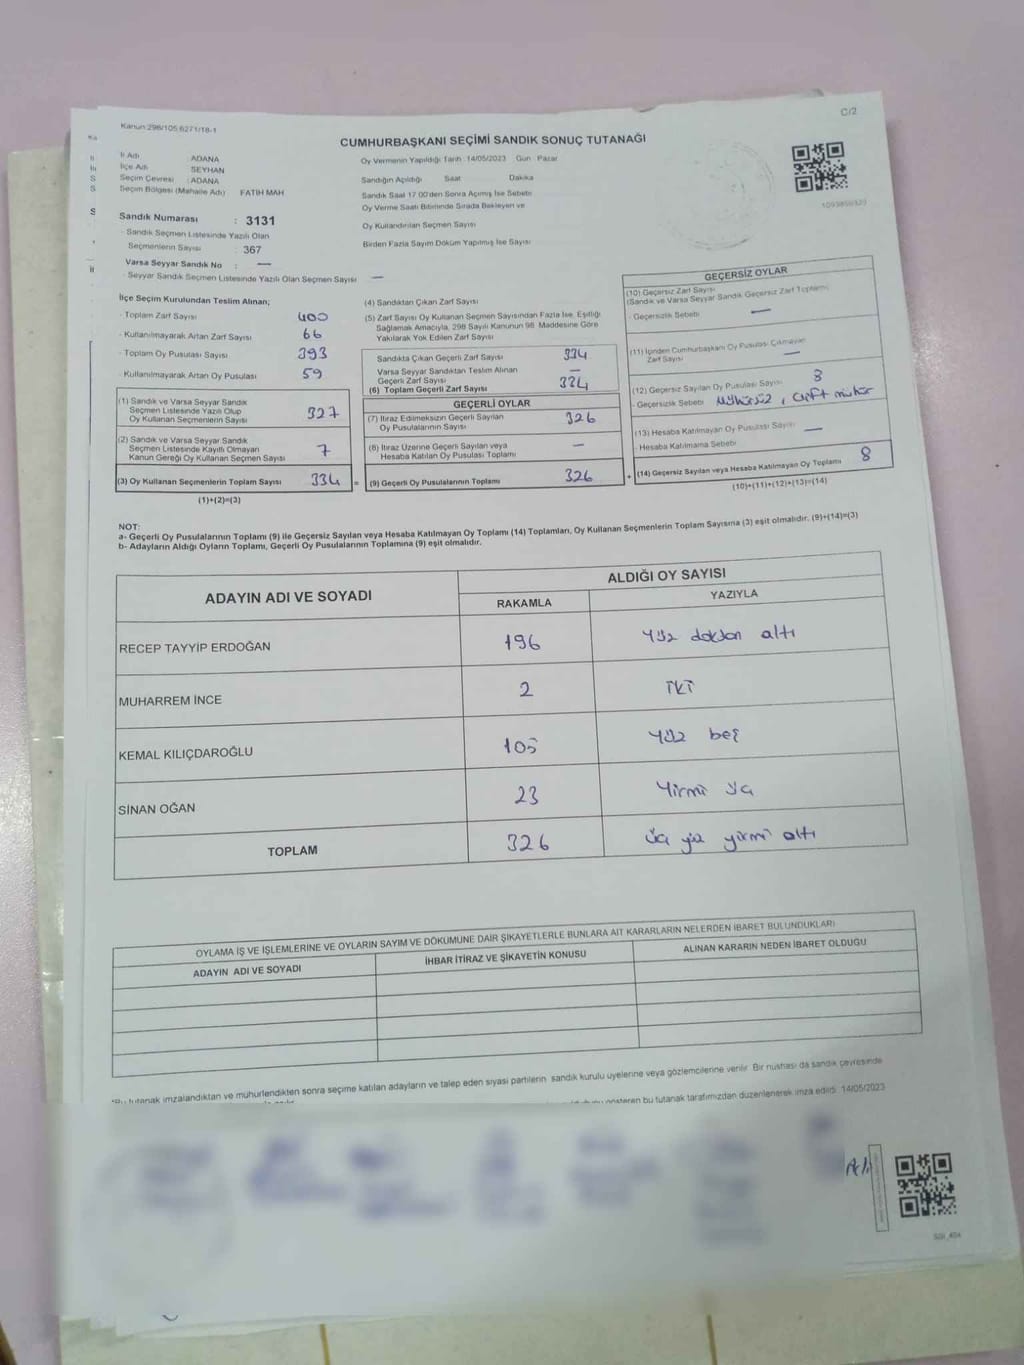 C/2
Kanun:298/105,6271/18-1
CUMHURBAŞKANI SEÇİMİ SANDIK SONUÇ TUTANAĞI
İl Adı : ADANA
İlçe Adı : SEYHAN
Seçim Çevresi : ADANA
Seçim Bölgesi (Mahalle Adı) FATİH MAH
Sandık Numarası : 3131
- Sandık Seçmen Listesinde Yazılı Olan
Seçmenlerin Sayısı : 367
Varsa Seyyar Sandık No : —
- Seyyar Sandık Seçmen Listesinde Yazılı Olan Seçmen Sayısı —
Oy Vermenin Yapıldığı Tarih :14/05/2023 Gün : Pazar
Sandığın Açıldığı Saat Dakika
Sandık Saat 17:00'den Sonra Açımış İse Sebebi
Oy Verme Saati Bitiminde Sırada Bekleyen ve
Oy Kullandırılan Seçmen Sayısı
Birden Fazla Sayım Döküm Yapılmış İse Sayısı
1093850323
İlçe Seçim Kurulundan Teslim Alınan;
- Toplam Zarf Sayısı 400
- Kullanılmayarak Artan Zarf Sayısı 66
- Toplam Oy Pusulası Sayısı 393
- Kullanılmayarak Artan Oy Pusulası 59
(1) Sandık ve Varsa Seyyar Sandık
Seçmen Listesinde Yazılı Olup
Oy Kullanan Seçmenlerin Sayısı 327
(2) Sandık ve Varsa Seyyar Sandık
Seçmen Listesinde Kayıtlı Olmayan
Kanun Gereği Oy Kullanan Seçmen Sayısı 7
(3) Oy Kullanan Seçmenlerin Toplam Sayısı 334 =
(1)+(2)=(3)
(4) Sandıktan Çıkan Zarf Sayısı
(5) Zarf Sayısı Oy Kullanan Seçmen Sayısından Fazla İse, Eşitliği
Sağlamak Amacıyla, 298 Sayılı Kanunun 98. Maddesine Göre
Yakılarak Yok Edilen Zarf Sayısı
Sandıkta Çıkan Geçerli Zarf Sayısı 334
Varsa Seyyar Sandıktan Teslim Alınan
Geçerli Zarf Sayısı —
(6) Toplam Geçerli Zarf Sayısı 334
GEÇERLİ OYLAR
(7) İtiraz Edilmeksizin Geçerli Sayılan
Oy Pusulalarının Sayısı 326
(8) İtiraz Üzerine Geçerli Sayılan veya
Hesaba Katılan Oy Pusulası Toplamı —
(9) Geçerli Oy Pusulalarının Toplamı 326 +
GEÇERSİZ OYLAR
(10) Geçersiz Zarf Sayısı
(Sandık ve Varsa Seyyar Sandık Geçersiz Zarf Toplamı)
- Geçersizlik Sebebi —
(11) İçinden Cumhurbaşkanı Oy Pusulası Çıkmayan
Zarf Sayısı —
(12) Geçersiz Sayılan Oy Pusulası Sayısı 8
- Geçersizlik Sebebi Mühürsüz, çift mühür
(13) Hesaba Katılmayan Oy Pusulası Sayısı —
- Hesaba Katılmama Sebebi
(14) Geçersiz Sayılan veya Hesaba Katılmayan Oy Toplamı 8
(10)+(11)+(12)+(13)=(14)
NOT:
a- Geçerli Oy Pusulalarının Toplamı (9) ile Geçersiz Sayılan veya Hesaba Katılmayan Oy Toplamı (14) Toplamları, Oy Kullanan Seçmenlerin Toplam Sayısına (3) eşit olmalıdır. (9)+(14)=(3)
b- Adayların Aldığı Oyların Toplamı, Geçerli Oy Pusulalarının Toplamına (9) eşit olmalıdır.
ADAYIN ADI VE SOYADI ALDIĞI OY SAYISI
RAKAMLA YAZIYLA
RECEP TAYYİP ERDOĞAN 196 Yüz doksan altı
MUHARREM İNCE 2 İKİ
KEMAL KILIÇDAROĞLU 105 Yüz beş
SİNAN OĞAN 23 Yirmi üç
TOPLAM 326 üç yüz yirmi altı
OYLAMA İŞ VE İŞLEMLERİNE VE OYLARIN SAYIM VE DÖKÜMÜNE DAİR ŞİKAYETLERLE BUNLARA AİT KARARLARIN NELERDEN İBARET BULUNDUKLARI
ADAYIN ADI VE SOYADI İHBAR İTİRAZ VE ŞİKAYETİN KONUSU ALINAN KARARIN NEDEN İBARET OLDUĞU
*Bu tutanak imzalandıktan ve mühürlendikten sonra seçime katılan adayların ve talep eden siyasi partilerin sandık kurulu üyelerine veya gözlemcilerine verilir. Bir nüshası da sandık çevresinde
gösteren bu tutanak tarafımızdan düzenlenerek imza edildi. 14/05/2023